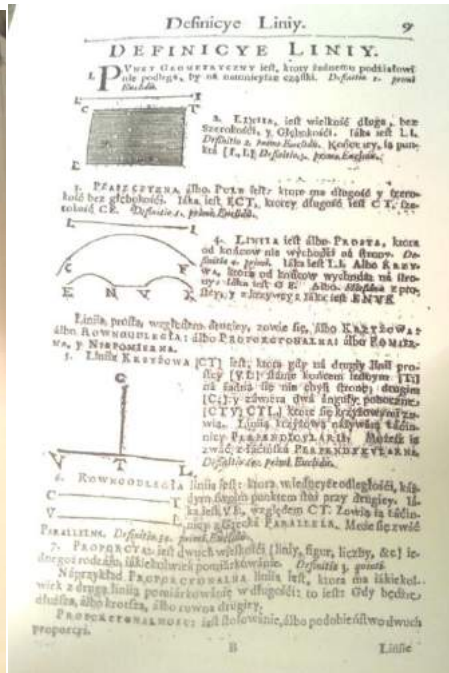 Definicye Liniy.
9
DEFINICYE LINIY.
1. PUNKT GEOMETRYCZNY iest, ktory żadnemu podźiałowi
nie podlega, by ná namnieysze cząstki. Definitio 1. primi
Euclidis.
I. I.
C T
E
2. LINIIA, iest wielkość długa, bez
szerokośći, y głębokośći. Iáka iest I.I.
Definitio 2. primi Euclidis. Końce iey, są pun-
ktá [I, I.] Definitio 3. primi Euclidis.
3. PŁASZCZYZNA álbo POLE iest: ktore ma długość y szero-
kość bez głębokośći. Iáka iest ECT, ktorey długość iest CT, sze-
rokość CE. Definitio 5. primi Euclidis.
I. I.
C F
E N V K
4. LINIIA iest álbo PROSTA, ktora
od końcow nie wychodźi ná strony. De-
finitio 4. primi. Iáka iest I.I. Albo KRZY-
WA, ktora od końcow wychodźi ná stro-
ny: iáka iest
Albo z pro-
stey, y z krzywey: iáka iest ENVK
Liniia prosta, względem drugiey, zowie się, álbo KRZYŻOWA:
álbo ROWNOODLEGŁA: álbo PROPORCYONALNA: álbo POMIER-
NA, y NIEPOMIERNA.
5. Liniia KRZYŻOWA [CT] iest, ktora gdy ná drugiy linii pro-
stey [VL] stánie końcem iednym [T:]
ná żadną się nie chyli stronę, drugim
[C:] y záwiera dwá ánguły poboczne
[CTV, CTL,] ktore się krzyżowymi zo-
wią. Liniią krzyżową názywáią Łáćin-
nicy PERPENDICVLARIS. Możesz ią
zwáć z łáćińska PERPENDYKVLARNA.
Definitio 10. primi Euclidis.
C
V T L
6. ROWNOODLEGŁA liniia iest: ktora w iedneyże odległośći, káż-
dym swoim punktem stoi przy drugiey. Iá-
ka iest VE, względem CT. Zowią ią Łáćin-
nicy z Grecká PARALLELA. Możesz ią zwáć
C T
V E
PARALLELNA. Definitio 35. primi Euclidis.
7. PROPORCYA: iest dwuch wielkośći (liniy, figur, liczby, &c.) ie-
dnegoż rodzáiu, iákiekolwiek pomiárkowánie. Definitio 3. quinti.
Náprzykład PROPORCYONALNA liniia iest, ktora ma iákiekol-
wiek z drugą liniią pomiárkowánie w długośći: to iest: Gdy będźie,
dłuższa, álbo krotsza, álbo rowna drugiey.
PROPORCYONALNOŚĆ: iest stosowánie, álbo podobieństwo dwuch
proporcyi.
B
Liniie